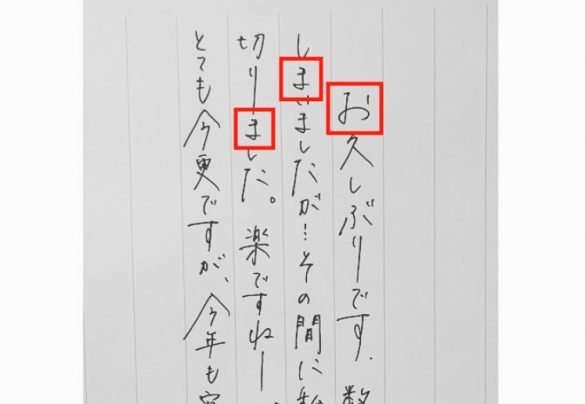 お久しぶりです、数
しまいましたが…その間に私
切りました。楽ですねー
とても今更ですが、今年も宜